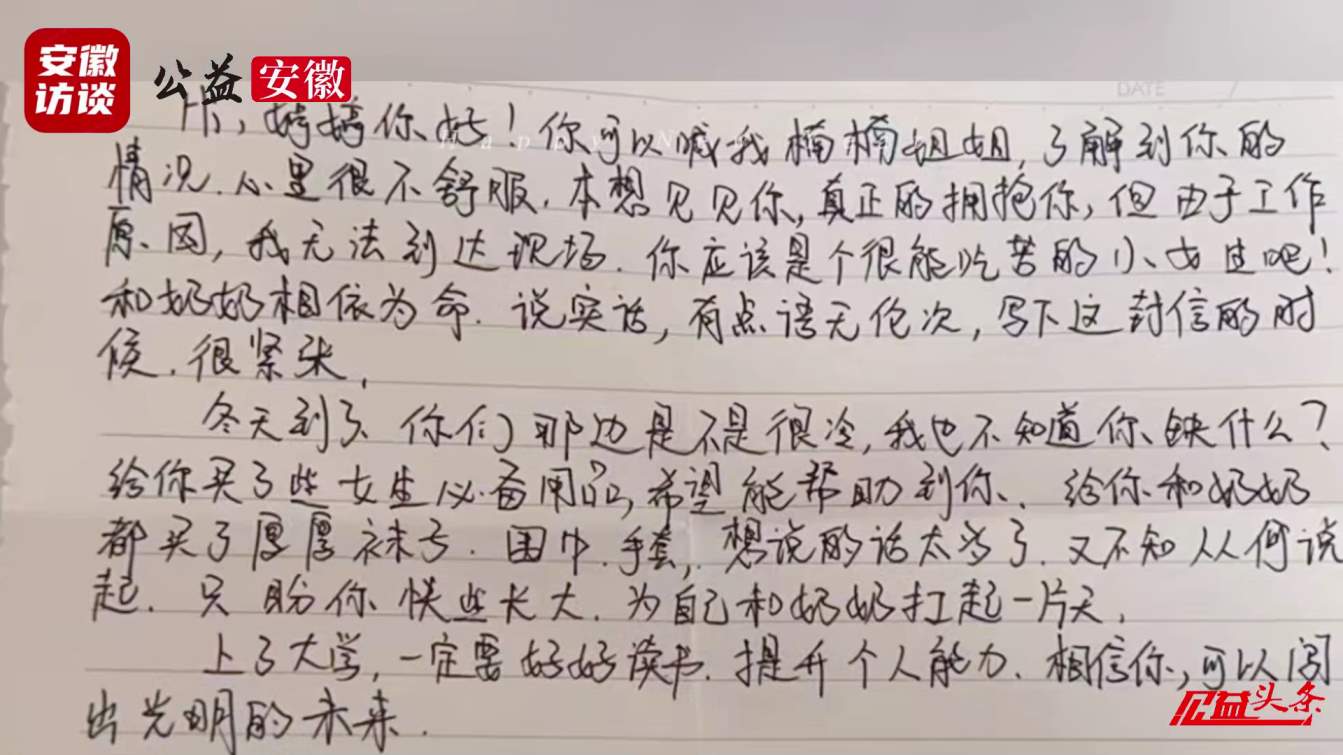 安徽
访谈
公益 安徽
DATE
你好！你可以喊我楠楠姐姐，了解到你的
情况．心里很不舒服．本想见见你，真正的拥抱你，但由于工作
原因，我无法到达现场．你应该是个很能吃苦的小女生吧！
和奶奶相依为命．说实话，有点语无伦次，写下这封信的时
候．很紧张，
冬天到了、你们那边是不是很冷，我也不知道你缺什么？
给你买了些女生必备用品，希望能帮助到你、给你和奶奶
都买了厚厚袜子．围巾．手套，想说的话太多了．又不知从何说
起．只盼你快些长大．为自己和奶奶扛起一片天．
上了大学，一定要好好读书．提升个人能力．相信你，可以闯
出光明的未来．
公益头条